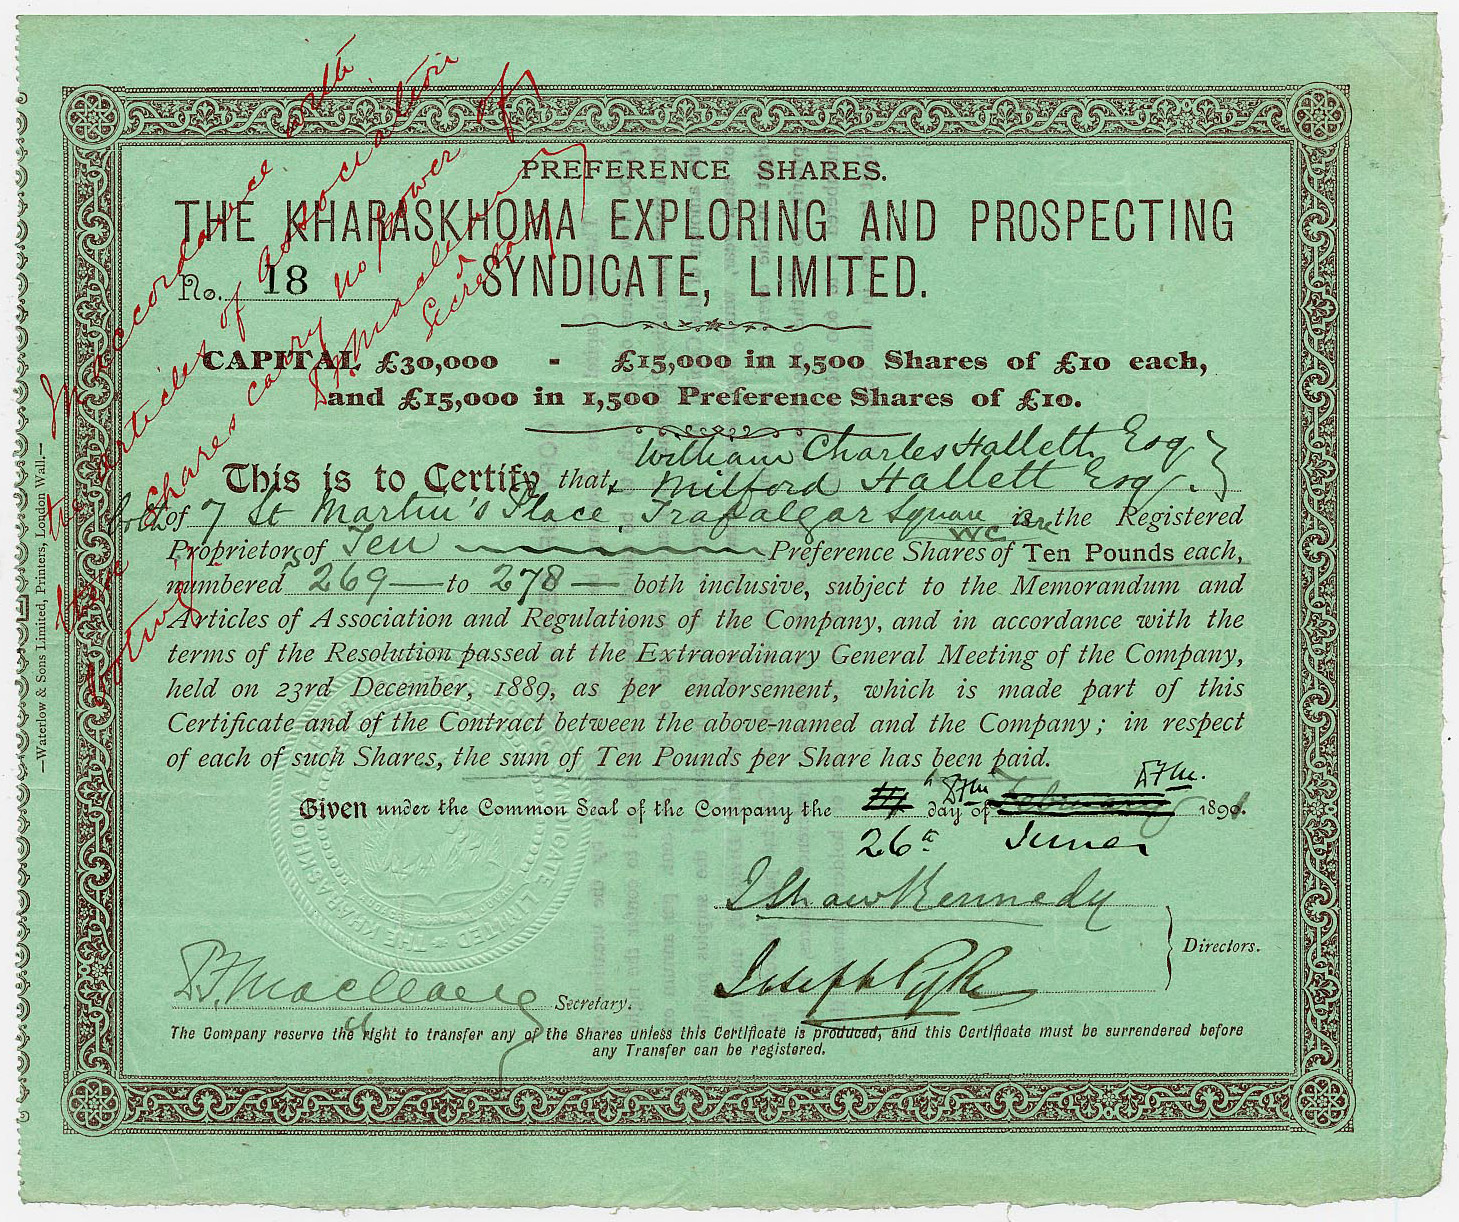 PREFERENCE SHARES.
THE KHARASKHOMA EXPLORING AND PROSPECTING
SYNDICATE, LIMITED.
No. 18
CAPITAL £30,000 - £15,000 in 1,500 Shares of £10 each,
and £15,000 in 1,500 Preference Shares of £10.
William Charles Hallett Esq
This is to Certify that & Milford Hallett Esq.
both of 7 St Martin's Place, Trafalgar Square WC are the Registered
Proprietors of Ten Preference Shares of Ten Pounds each,
numbered 269 — to 278 — both inclusive, subject to the Memorandum and
Articles of Association and Regulations of the Company, and in accordance with the
terms of the Resolution passed at the Extraordinary General Meeting of the Company,
held on 23rd December, 1889, as per endorsement, which is made part of this
Certificate and of the Contract between the above-named and the Company; in respect
of each of such Shares, the sum of Ten Pounds per Share has been paid.
Given under the Common Seal of the Company the day of 1891.
26th June
Joseph Pyke
Directors.
Secretary.
The Company reserve the right to transfer any of the Shares unless this Certificate is produced, and this Certificate must be surrendered before
any Transfer can be registered.
In accordance with
the articles of Association
these Shares carry no power of
voting
Secretary
—Waterlow & Sons Limited, Printers, London Wall.—